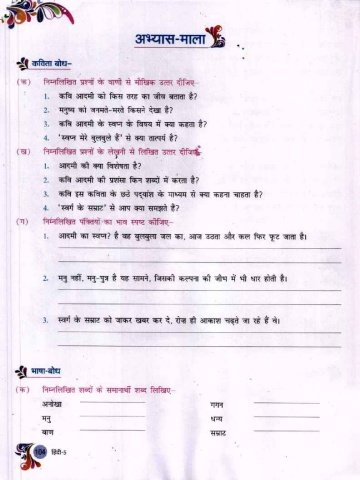 अभ्यास-माला
कविता बोध–
(क) निम्नलिखित प्रश्नों के वाणी से मौखिक उत्तर दीजिए–
1. कवि आदमी को किस तरह का जीव बताता है?
2. मनुष्य को जनमते-मरते किसने देखा है?
3. कवि आदमी के स्वप्न के विषय में क्या कहता है?
4. 'स्वप्न मेरे बुलबुले हैं' से क्या तात्पर्य है?
(ख) निम्नलिखित प्रश्नों के लेखनी में लिखित उत्तर दीजिए–
1. आदमी की क्या विशेषता है?
2. कवि आदमी की प्रशंसा किन शब्दों में करता है?
3. कवि इस कविता के छठे पद्यांश के माध्यम से क्या कहना चाहता है?
4. 'स्वर्ग के सम्राट' से आप क्या समझते हैं?
(ग) निम्नलिखित पंक्तियों का भाव स्पष्ट कीजिए–
1. आदमी का स्वप्न? है वह बुलबुला जल का, आज उठता और कल फिर फूट जाता है।
2. मनु नहीं, मनु-पुत्र है यह सामने, जिसकी कल्पना की जीभ में भी धार होती है।
3. स्वर्ग के सम्राट को जाकर खबर कर दे, रोज़ ही आकाश चढ़ते जा रहे हैं वे।
भाषा-बोध
(क) निम्नलिखित शब्दों के समानार्थी शब्द लिखिए–
अनोखा गगन
मनु धन्य
बाण सम्राट
104 हिंदी-5